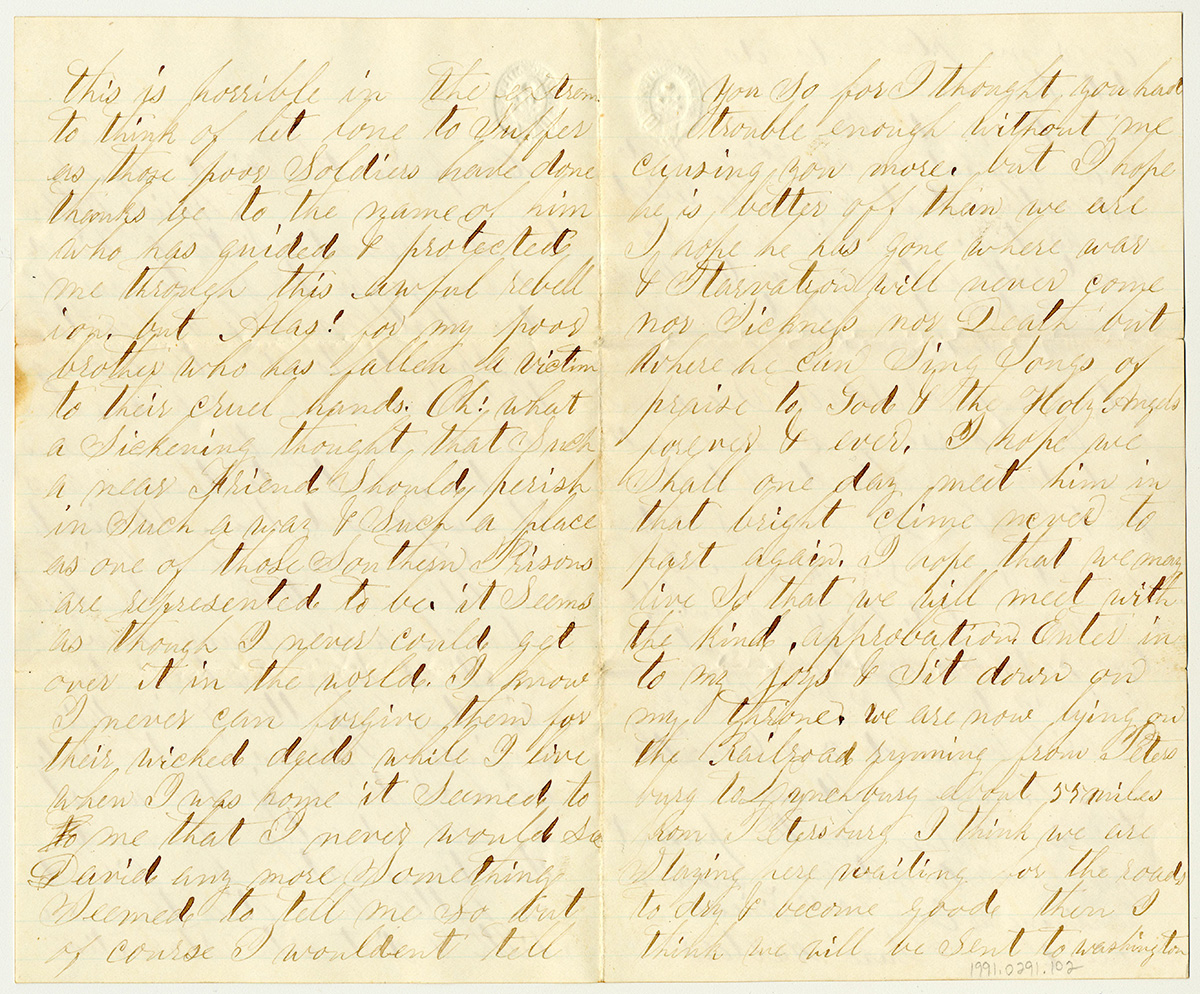 this is horrible in the extrem
to think of let lone to Suffer
as those poor Soldiers have done
thanks be to the name of him
who has guided & protected
me through this awful rebell
ion. but Alas! for my poor
brother who has fallen a victim
to their cruel hands. Oh! what
a Sickening thought that Such
a near Friend Should perish
in Such a way & Such a place
as one of those Southern Prisons
are represented to be. it Seems
as though I never could get
over it in the world. I know
I never can forgive them for
their wicked deeds while I live
when I was home it Seemed to
to me that I never would see
David any more Something
Seemed to tell me so but
of course I wouldent tell
you So for I thought you had
trouble enough without me
causing you more. but I hope
he is better off than we are
I hope he has gone where war
& Starvation will never come
nor Sickness nor Death but
where he can Sing Songs of
praise to God & the Holy Angels
forever & ever. I hope we
Shall one day meet him in
that bright clime never to
part again. I hope that we may
live So that we will meet with
the kind approbation Enter in
to my joys & Sit down on
my throne. we are now lying on
the Railroad running from Peters
burg to Lynchburg about 55 miles
from Petersburg I think we are
Staying here waiting for the roads
to dry & become good then I
think we will be Sent to washington
1991.0291.102